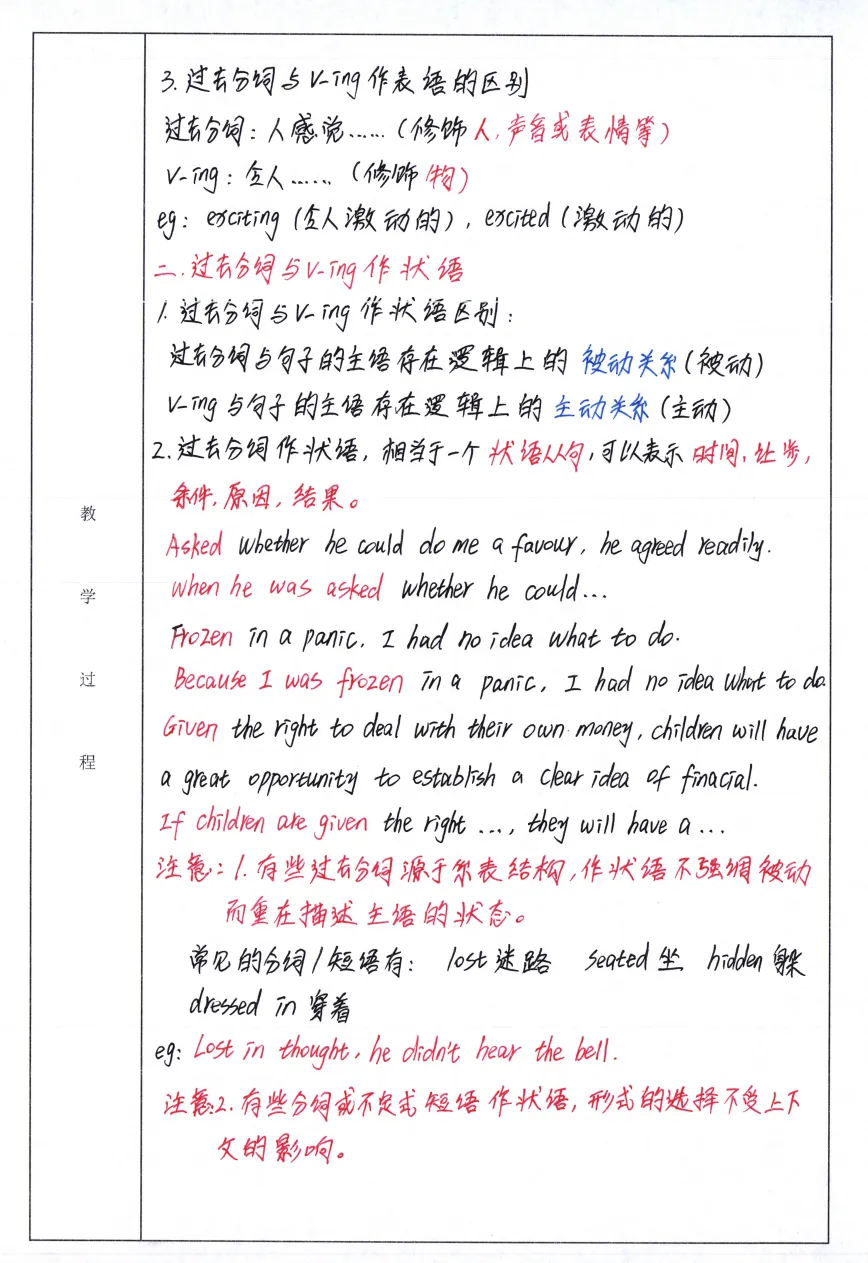 教
学
过
程
3.过去分词与V-ing作表语的区别
过去分词:人感觉……(修饰人,声音或表情等)
V-ing:令人……(修饰物)
eg: exciting(令人激动的), excited(激动的)
二.过去分词与V-ing作状语
1.过去分词与V-ing作状语区别:
过去分词与句子的主语存在逻辑上的被动关系(被动)
V-ing与句子的主语存在逻辑上的主动关系(主动)
2.过去分词作状语,相当于一个状语从句,可以表示时间,让步,
条件,原因,结果。
Asked whether he could do me a favour, he agreed readily.
When he was asked whether he could...
Frozen in a panic, I had no idea what to do.
Because I was frozen in a panic, I had no idea what to do.
Given the right to deal with their own money, children will have
a great opportunity to establish a clear idea of finacial.
If children are given the right ..., they will have a ...
注意:1.有些过去分词源于系表结构,作状语不强调被动
而重在描述主语的状态。
常见的分词/短语有: lost迷路 seated坐 hidden躲
dressed in 穿着
eg: Lost in thought, he didn't hear the bell.
注意:2.有些分词或不定式短语作状语,形式的选择不受上下
文的影响。